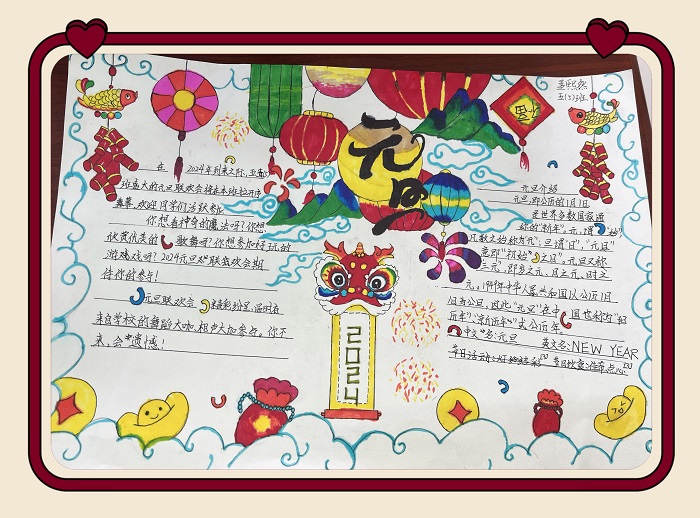 元旦
五(2)班
福
在 2024年到来之际,五
班盛大的元旦联欢会将在本班拉开序
幕,欢迎同学们活跃参加
你想看神奇的魔法吗?你想
欣赏优美的歌舞吗?你想参加好玩的
游戏吗?2024元旦联欢会期
待你的参与!
元旦联欢会 精彩纷呈,活动在
来自学校的舞蹈大咖,
来,会遗憾!
2024
元旦介绍
元旦,即公历的1月1日
是世界多数国家通
称的“新年”。元,谓“始”,
凡数之始称为“元”;旦,谓“日”;“元旦”
意即“初始之日”。元旦又称
“三元”,即岁之元、月之元、时之
元。1949年中华人民共和国以公历1月
1日为元旦,因此“元旦”在中国也称为“阳
历年”
中文名:元旦 英文名:NEW YEAR
节日活动: